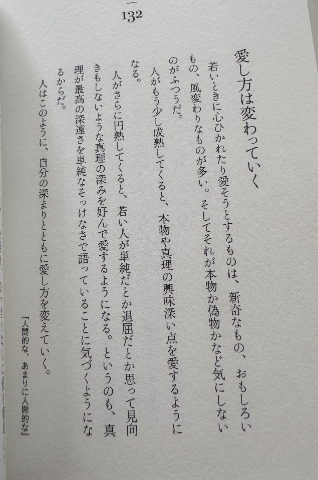 132
愛し方は変わっていく
若いときに心ひかれたり愛そうとするものは、新奇なもの、おもしろい
もの、風変わりなものが多い。そしてそれが本物か偽物かなど気にしない
のがふつうだ。
人がもう少し成熟してくると、本物や真理の興味深い点を愛するように
なる。
人がさらに円熟してくると、若い人が単純だとか退屈だとか思って見向
きもしないような真理の深みを好んで愛するようになる。というのも、真
理が最高の深遠さを単純なそっけなさで語っていることに気づくようにな
るからだ。
人はこのように、自分の深まりとともに愛し方を変えていく。
『人間的な、あまりに人間的な』